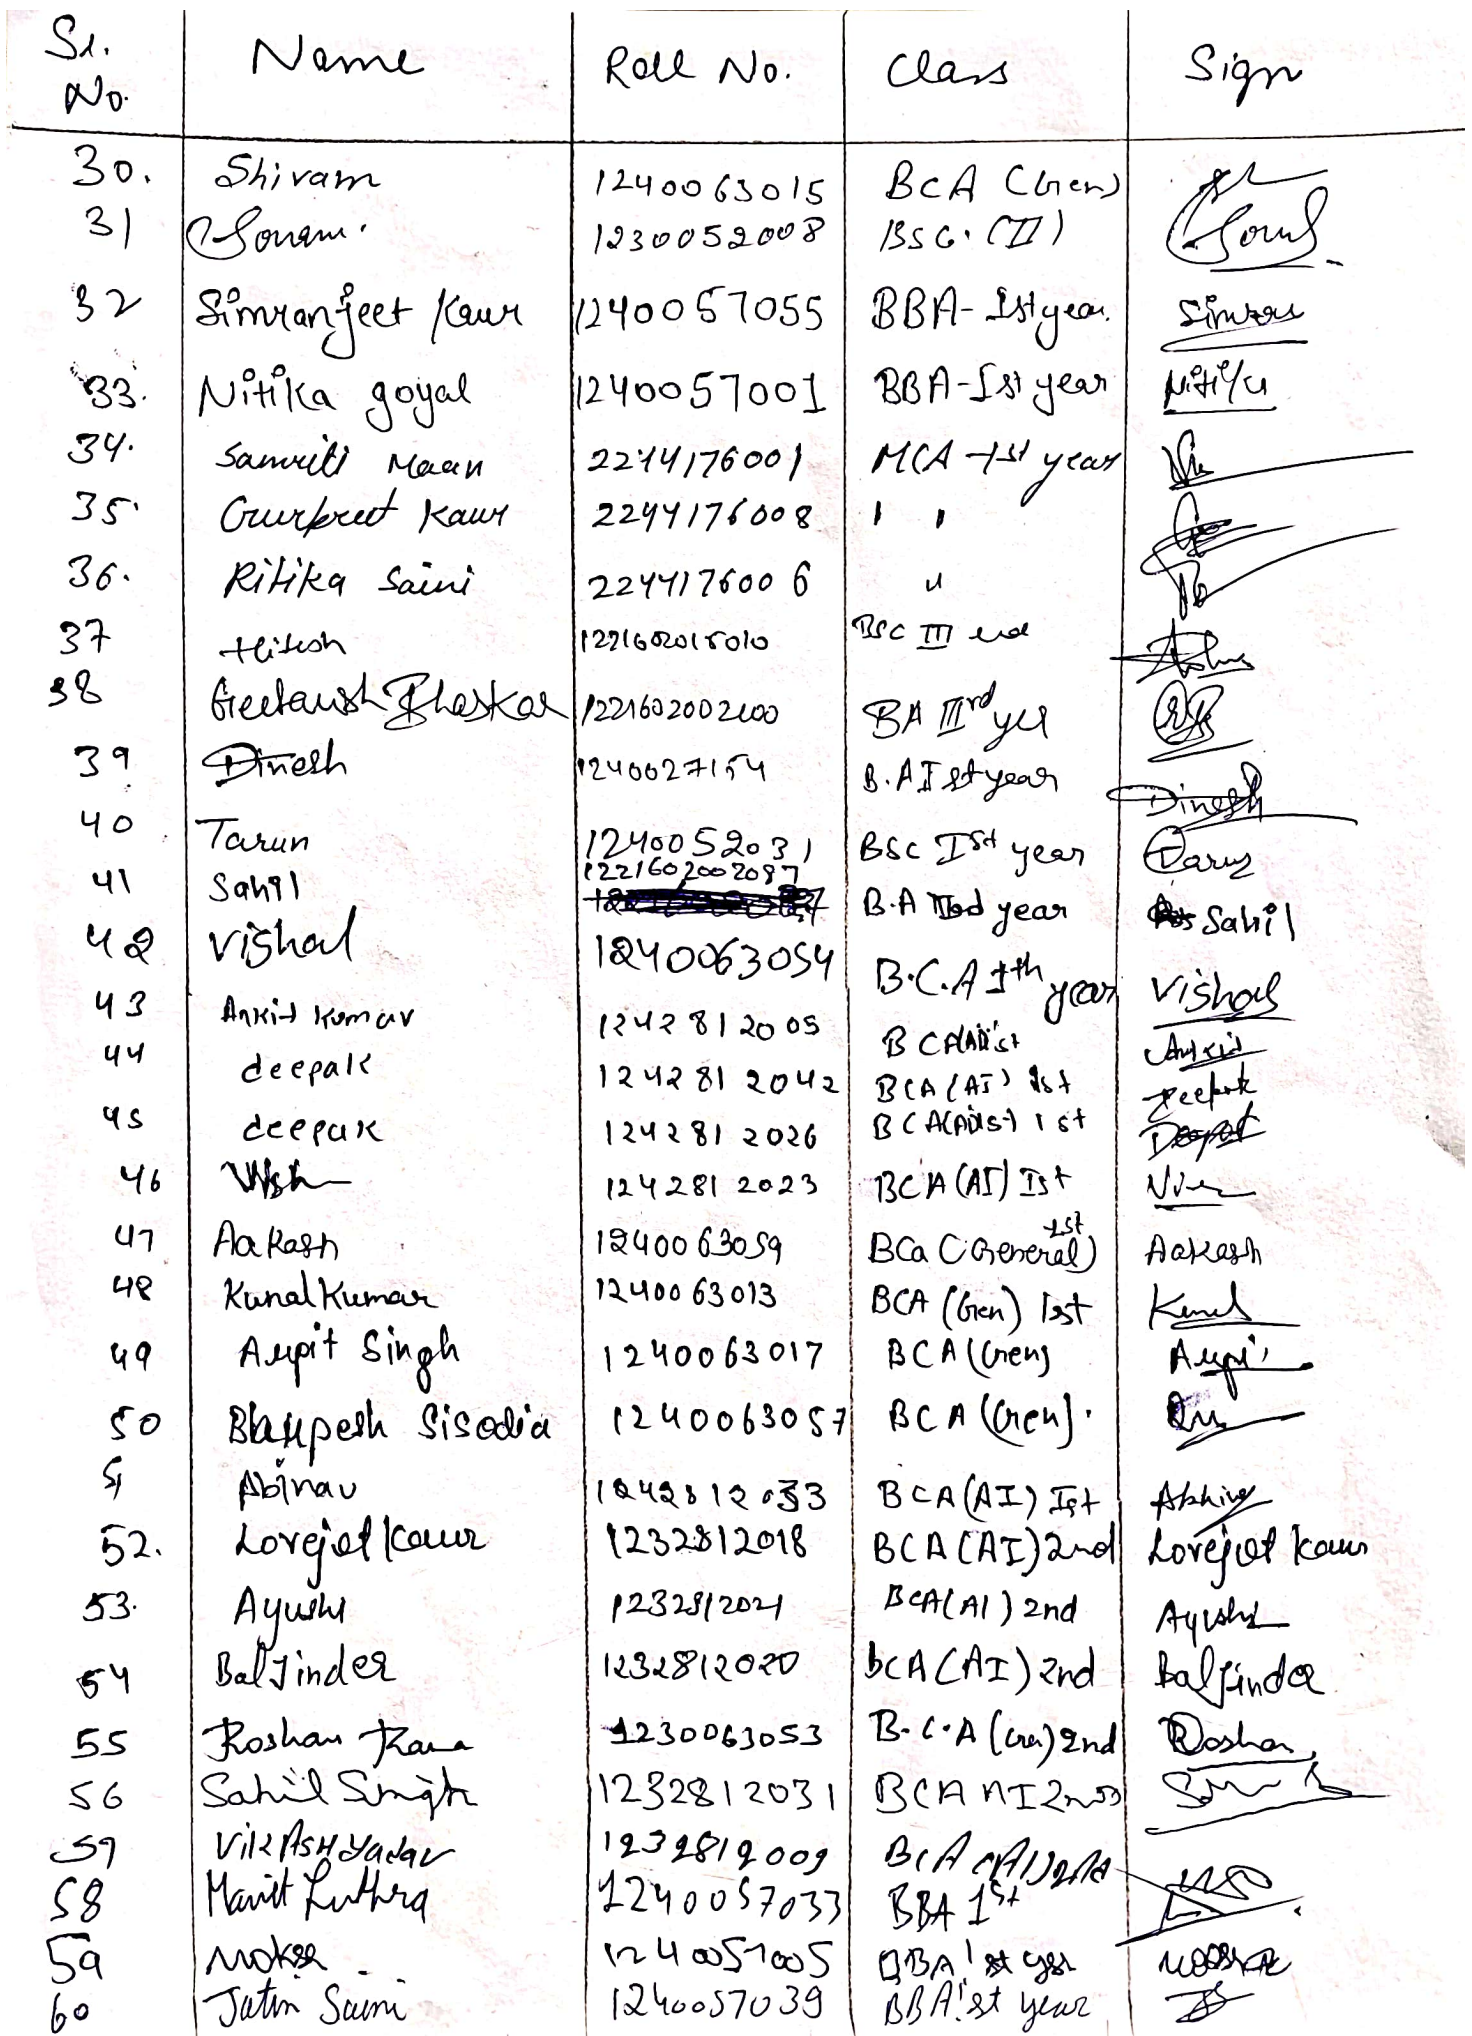 Sr. No. Name Roll No. Class Sign
30. Shivam 1240063015 BCA (Gen)
31 Sonam. 1230052008 BSC. (II)
32 Simranjeet Kaur 1240057055 BBA-Ist year. Simran
33. Nitika goyal 1240057001 BBA-Ist year Nitika
34. Samriti Maan 2244176001 MCA-1st year
35. Gurpreet Kaur 2244176008 " "
36. Ritika Saini 2244176006 "
37 Hitesh 1221602015010 BSC III
38 Geetansh Bhaskar BA IIIrd
39 Dinesh 1240027154 B.A Ist year Dinesh
40 Tarun 1240052031 BSC Ist year Tarun
41 Sahil 1221602002087 B.A year Sahil
42 Vishal 1240063054 B.C.A 1th year Vishal
43 Ankit Kumar 1242812005 Ankit
44 deepak 1242812042 BCA (AI) 1st Deepak
45 deepak 1242812026 1st
46 1242812023 BCA (AI) Ist
47 Aakash 1240063059 BCa (General) 1st Aakash
48 Kunal Kumar 1240063013 BCA (Gen) 1st Kunal
49 Arpit Singh 1240063017 BCA (Gen)
50 Bhupesh Sisodia 1240063057 BCA (Gen).
51 Abinav 1242812033 BCA (AI) Ist
52. Lovejot Kaur 1232812018 BCA (AI) 2nd Lovejot Kaur
53. Ayushi 1232812021 BCA (AI) 2nd Ayushi
54 BalJinder 1232812020 bCA (AI) 2nd Baljinder
55 Roshan Rana 1230063053 B.C.A (Gen) 2nd Roshan
56 Sahil Singh 1232812031 BCA AI 2nd
57 Vikash Yadav 1232812009 BCA (AI) 2nd
58 Luthra 1240057033 BBA 1st
59 1240057005 BBA 1st year
60 Jatin Saini 1240057039 BBA 1st year